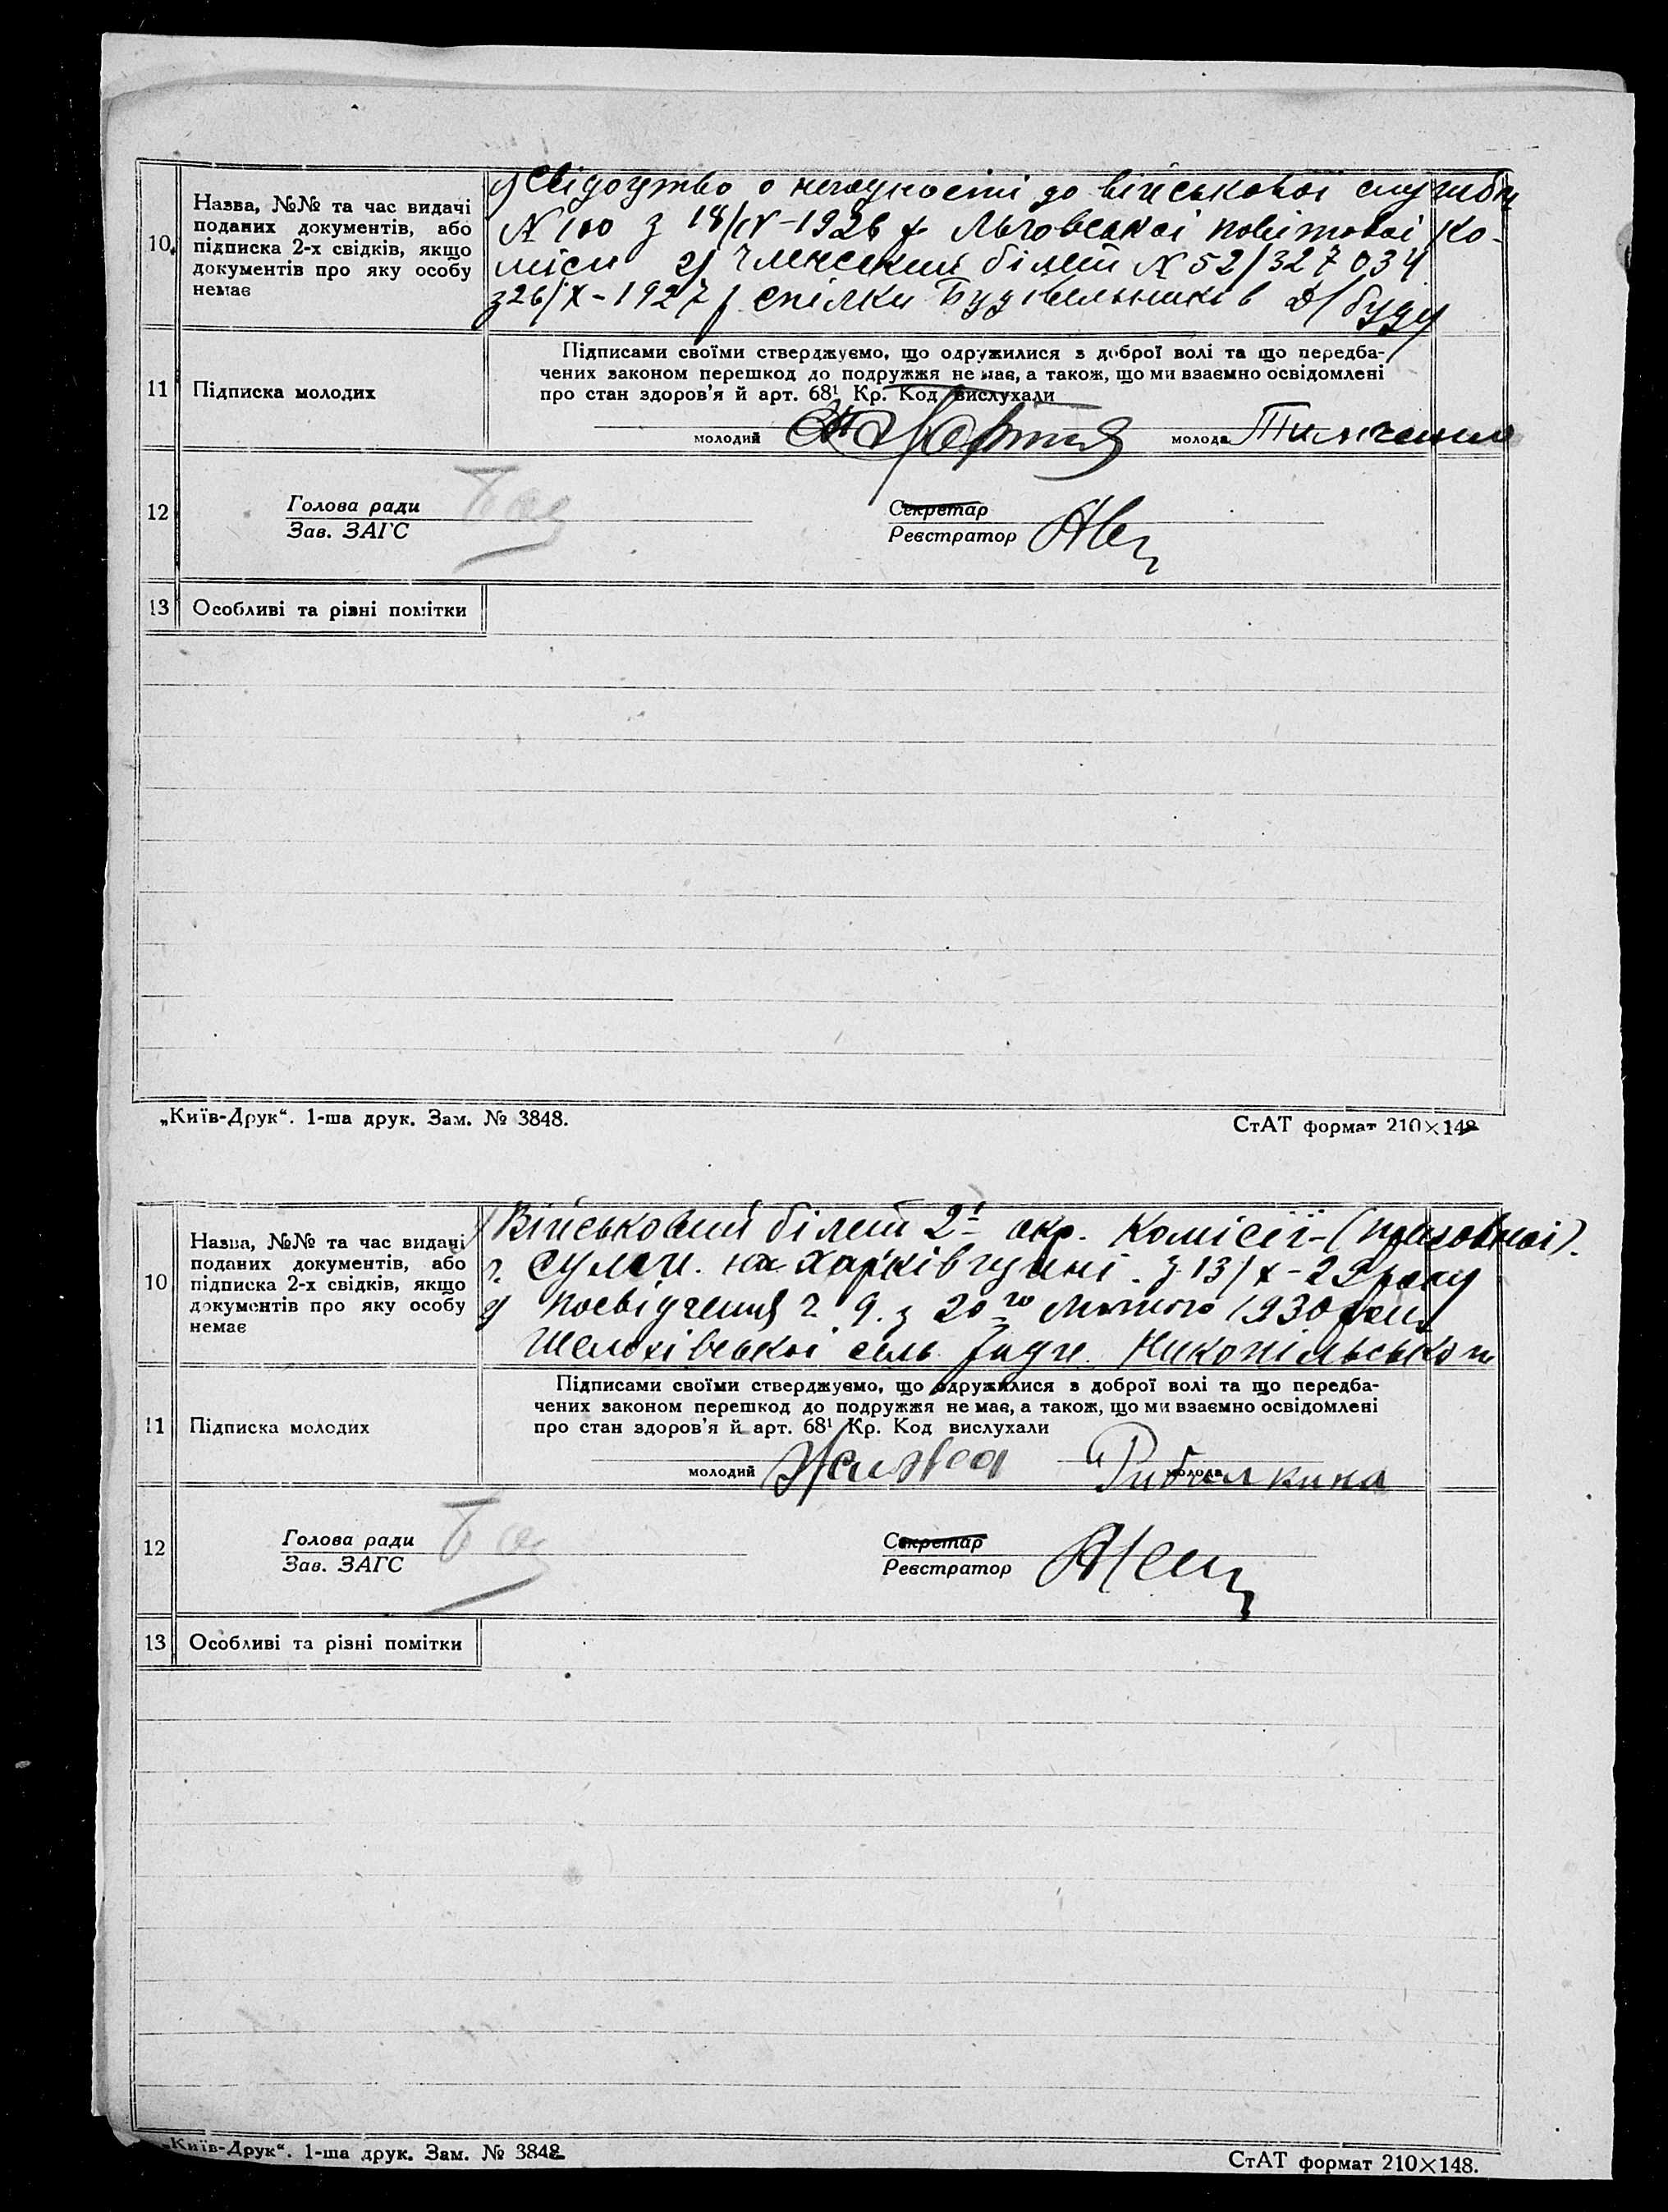 10. Назва, №№ та час видачі
поданих документів, або
підписка 2-х свідків, якщо
документів про яку особу
немає
Свідоцтво о негодности до військової служби
N 100 з 18/IV-1926 р Льговської повітової Ко-
місіи 2) Членский білет N 52/327034
з 26/X-1927 р Спілки Будівельників
11 Підписка молодих
Підписами своїми стверджуємо, що одружилися з доброї волі та що передба-
чених законом перешкод до подружжя не має, а також, що ми взаємно освідомлені
про стан здоров'я й арт. 68¹ Кр. Код вислухали
молодий молода Тимченко
12 Голова ради
Зав. ЗАГС
Секретар
Реєстратор
13 Особливі та різні помітки
„Київ-Друк“. 1-ша друк. Зам. № 3848.
СтАТ формат 210×148
10 Назва, №№ та час видачі
поданих документів, або
підписка 2-х свідків, якщо
документів про яку особу
немає
Військовий білет 2ї окр. Комісії-(призовної).
Суми. на Харківщині. з 13/X-29 року
2) Посвідчення ч 9. з 20го Лютого 1930 року
сель Нікопільського
11 Підписка молодих
Підписами своїми стверджуємо, що одружилися з доброї волі та що передба-
чених законом перешкод до подружжя не має, а також, що ми взаємно освідомлені
про стан здоров'я й арт. 68¹ Кр. Код вислухали
молодий молода Рибалкина
12 Голова ради
Зав. ЗАГС
Секретар
Реєстратор
13 Особливі та різні помітки
„Київ-Друк“. 1-ша друк. Зам. № 3848.
СтАТ формат 210×148.